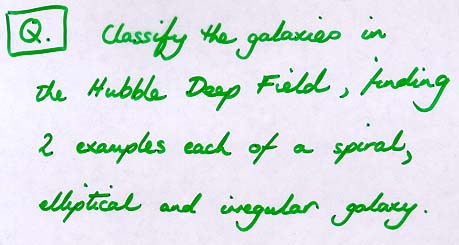 Q. Classify the galaxies in
the Hubble Deep Field, finding
2 examples each of a spiral,
elliptical and irregular galaxy.